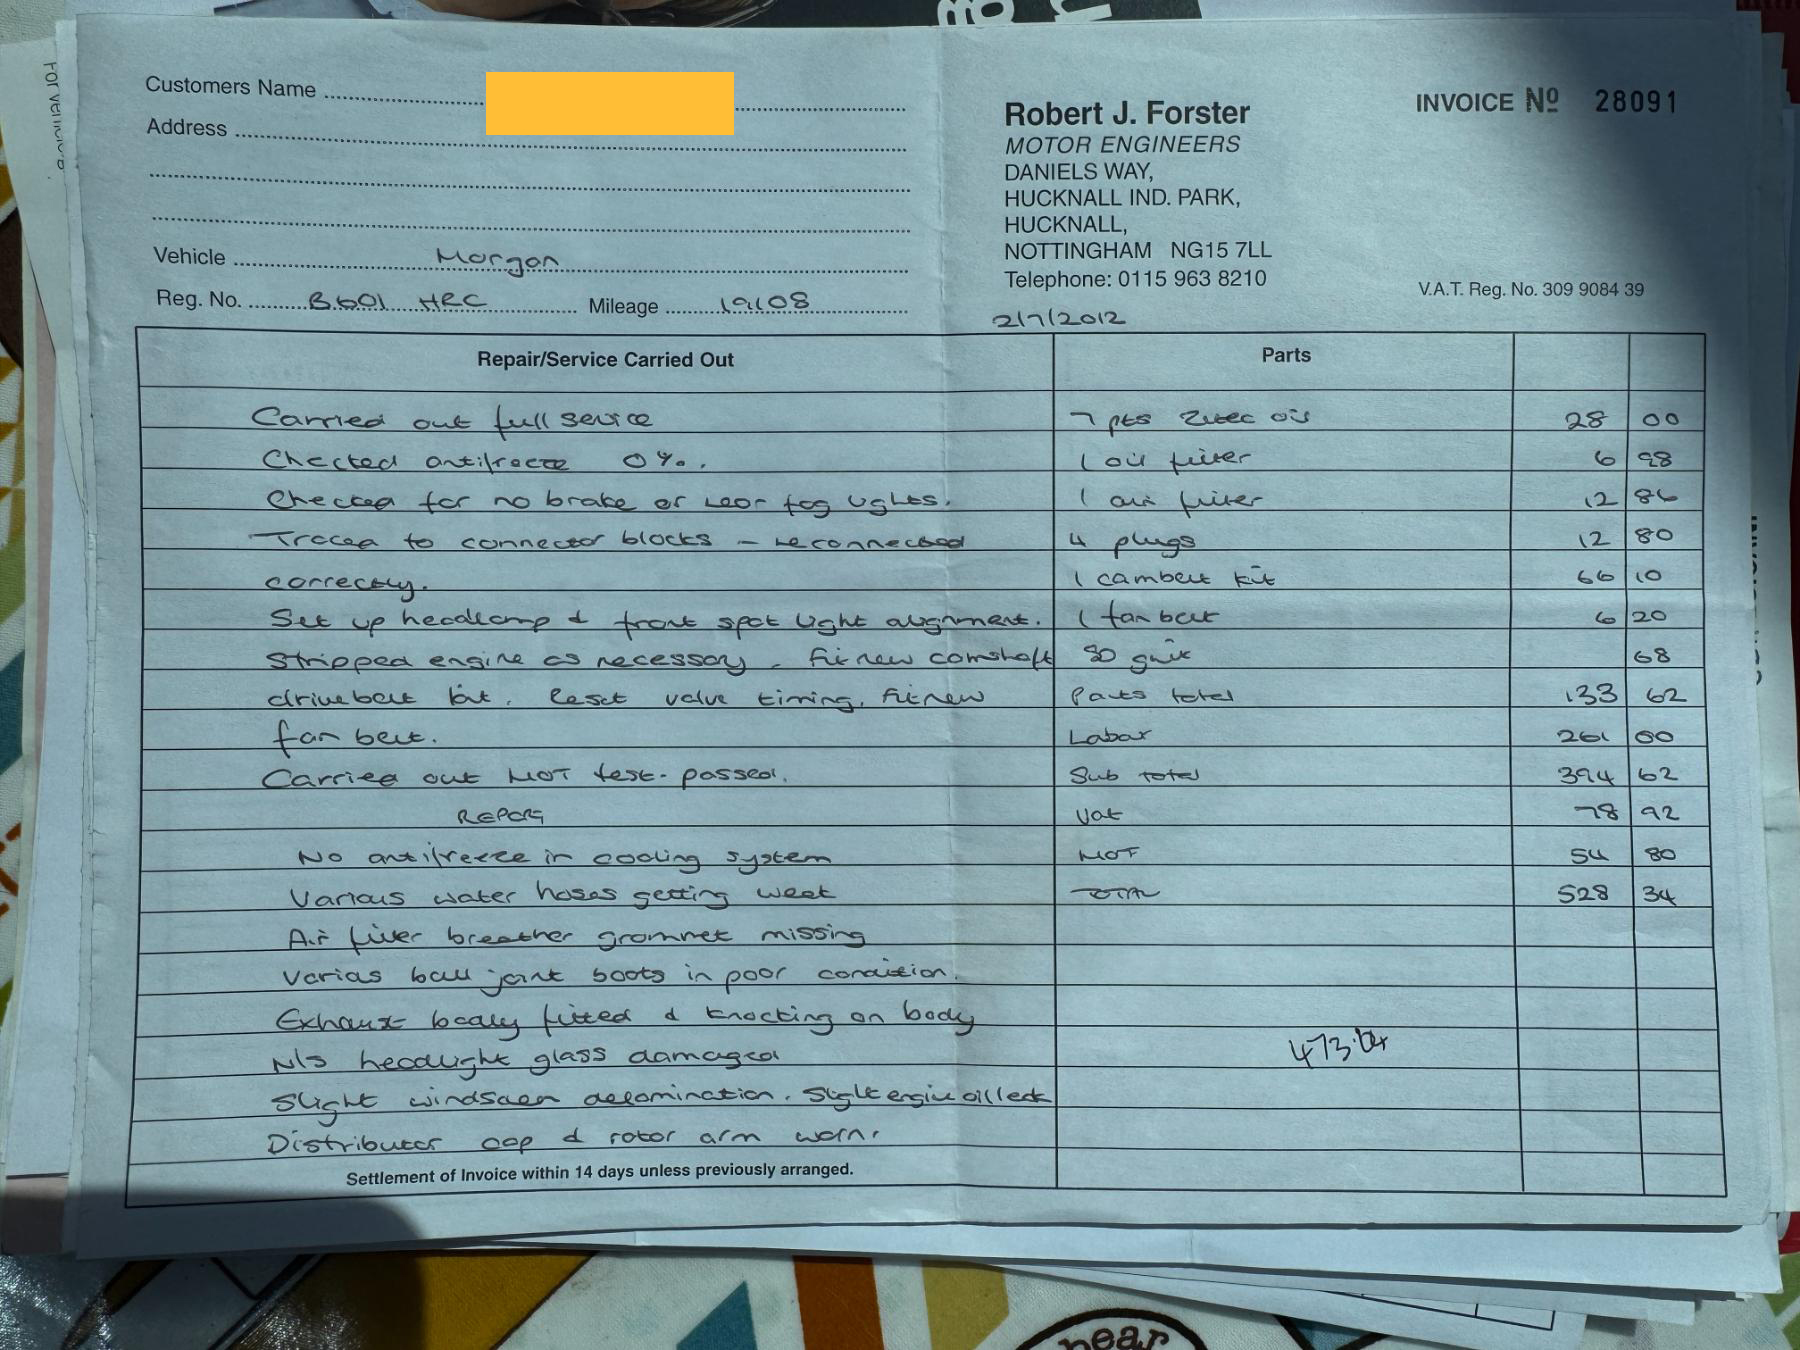 For vehicle's
Customers Name
Address
Vehicle Morgan
Reg. No. B601 HRC Mileage 19108
Robert J. Forster
MOTOR ENGINEERS
DANIELS WAY,
HUCKNALL IND. PARK,
HUCKNALL,
NOTTINGHAM NG15 7LL
Telephone: 0115 963 8210
INVOICE Nº 28091
V.A.T. Reg. No. 309 9084 39
2/7/2012
Repair/Service Carried Out Parts
Carried out full service 7 pts Zetec oil 28 00
Checked antifreeze 0%. 1 oil filter 6 98
Checked for no brake or rear fog lights. 1 air filter 12 86
Traced to connector blocks - reconnected 4 plugs 12 80
correctly. 1 cambelt kit 66 10
Set up headlamp & front spot light alignment. 1 fan belt 6 20
Stripped engine as necessary. Fit new camshaft 68
drivebelt kit. Reset valve timing. Fit new Parts total 133 62
fan belt. Labour 261 00
Carried out MOT test - passed. Sub total 394 62
REPORT Vat 78 92
No antifreeze in cooling system MOT 54 80
Various water hoses getting weak TOTAL 528 34
Air filter breather grommet missing
Various ball joint boots in poor condition.
Exhaust badly fitted & knocking on body
N/S headlight glass damaged
Slight windscreen delamination. Slight engine oil leak
Distributor cap & rotor arm worn.
Settlement of Invoice within 14 days unless previously arranged.
bear